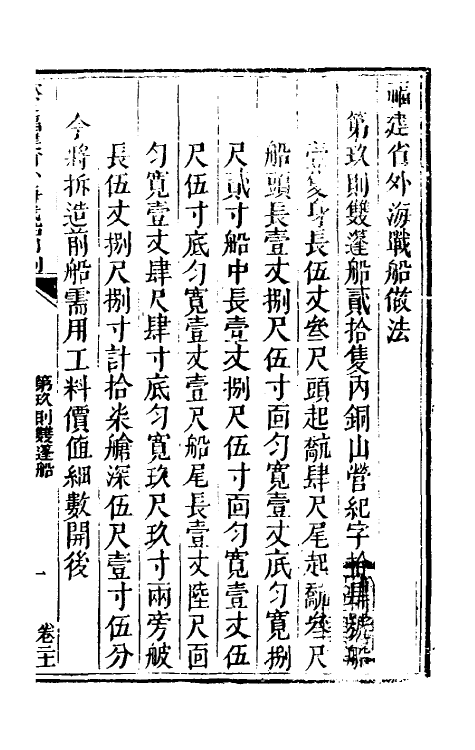 福建省外海戰船做法
第玖則雙篷船貳拾隻內銅山營紀字拾肆號船
壹隻身長伍丈叁尺頭起䑨肆尺尾起䑨叁尺
船頭長壹丈捌尺伍寸面勻寬壹丈底勻寬捌
尺貳寸船中長壹丈捌尺伍寸面勻寬壹丈伍
尺伍寸底勻寬壹丈壹尺船尾長壹丈陸尺面
勻寬壹丈肆尺肆寸底勻寬玖尺玖寸兩旁𦨭
長伍丈捌尺捌寸計拾柒艙深伍尺壹寸伍分
今將拆造前船需用工料價值細數開後
第玖則雙篷船
一